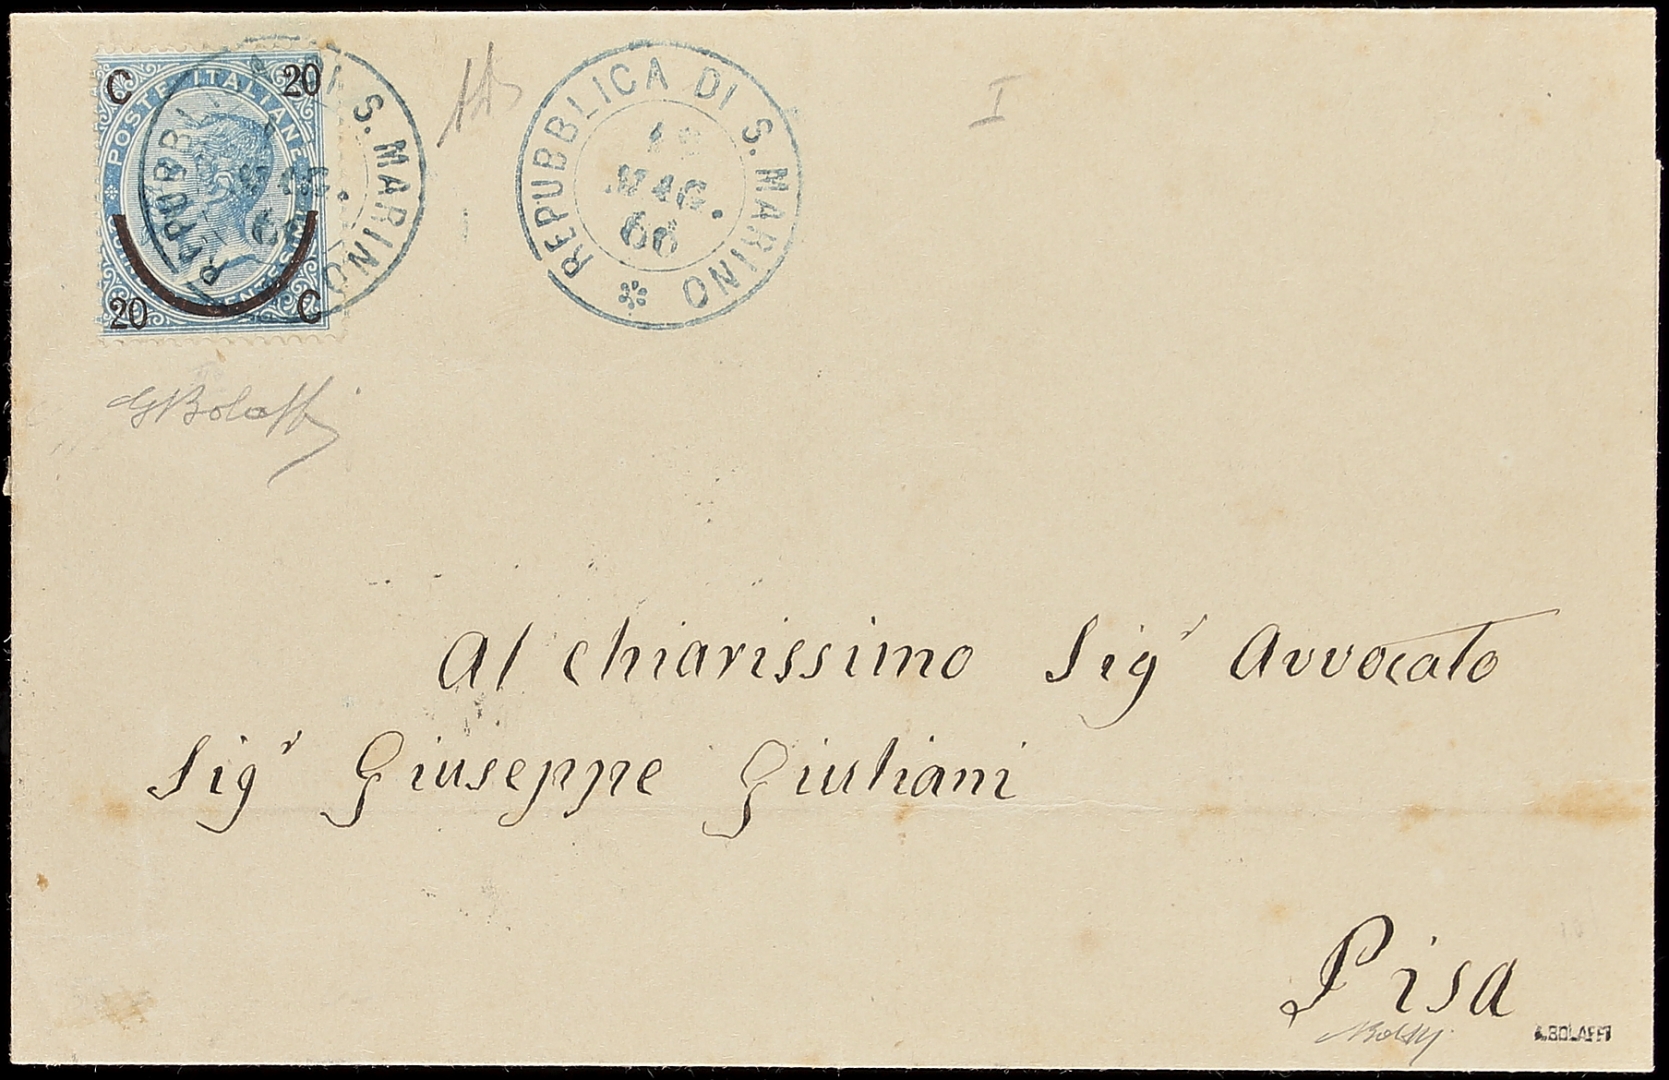 C 20
POSTE ITALIANE
20 C
REPUBBLICA DI S. MARINO
REPUBBLICA DI S. MARINO
MAG.
66
I
G Bolaffi
Al chiarissimo Sigr Avvocato
Sigr Giuseppe Giuliani
Pisa
A.BOLAFFI